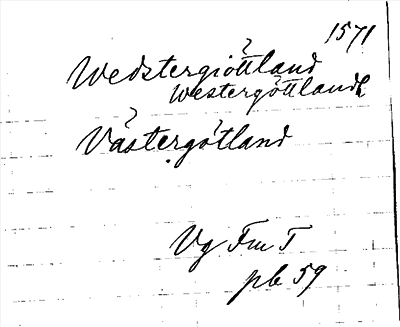 1571
Wedstergiöttland
Westergöttland
Västergötland
Vg FmT
pb 59